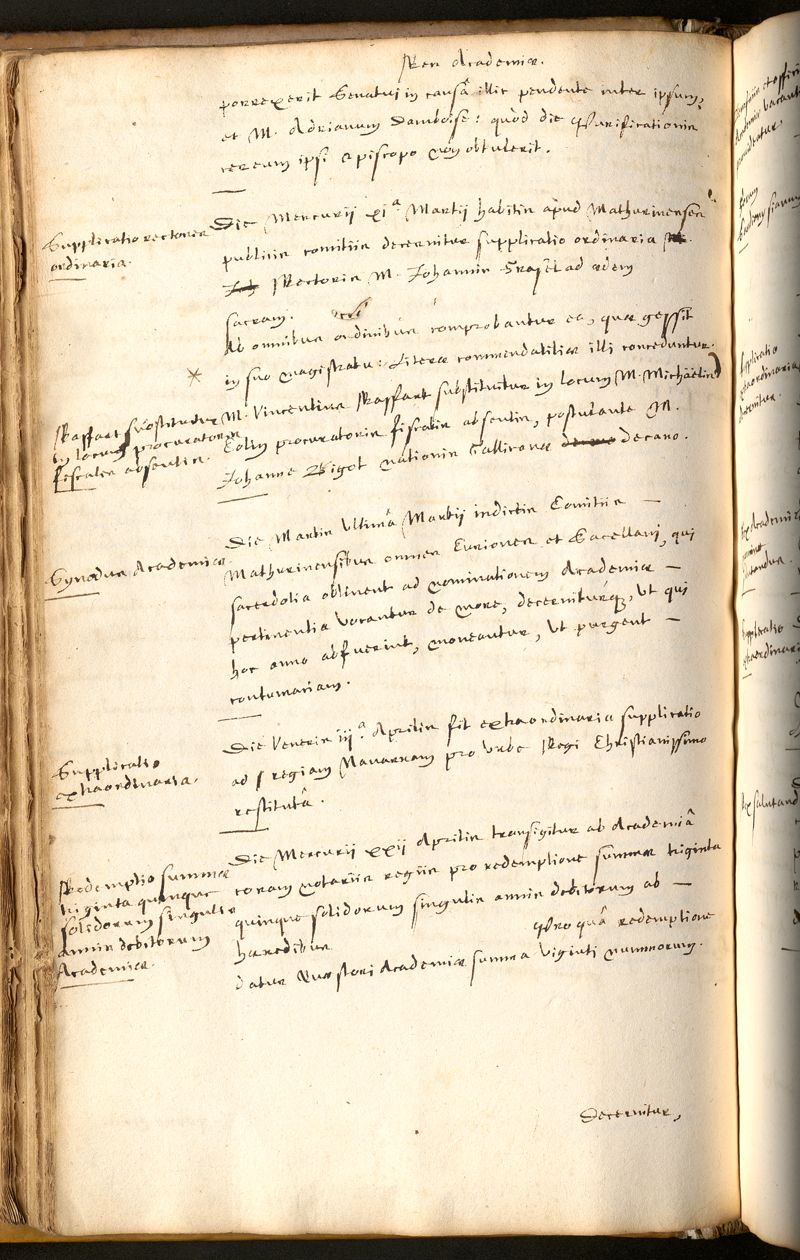 Rer Academiæ.
porrexerit Senatui in causâ illic pendente inter ipsum,
et M. Adrianum Damboise: quòd die Purificationis
cereum ipsi Episcopo non obtulerit.
Supplicatio rectoris
ordinaria.
Die Mercurij xi.ª Martij habitis apud Mathurinenses
publicis comitiis decernitur supplicatio ordinaria
Rectoris M. Johannis ad ædem
sacram.
Ab omnibus ordinibus comprobantur ea, quæ gessit
in suo magistratu: Literæ commendatitiæ illi conceduntur.
Raffart substituitur
in locum procuratoris
fiscalis absentis.
M. Vincentius Raffart substituitur in locum M. Michaëlis
Colin procuratoris fiscalis absentis, postulante M.
Johanne Bigot nationis Gallicanæ decano.
Synodus Academiæ.
Die Martis ultimâ Martij indictis Comitiis
Mathurinensibus omnes Curiones et Sacellani, qui
sacerdotia obtinent ad nominationem Academiæ
pertinentia vocantur de more, decerniturq́, ut qui
hoc anno abfuerint, moneantur, ut purgent
contumaciam.
Supplicatio
extraordinaria.
Die Veneris iij.ª Aprilis fit extraordinaria supplicatio
ad regiam Navarram pro urbe Regi Christianissimo
restitutâ.
Redemptio summæ
triginta quinque
solidorum singulis
annis debitorum
Academiæ.
Die Mercurij xxij Aprilis transigitur ab Academiâ
coram notariis regiis pro redemptione summæ triginta
quinque solidorum singulis annis debitorum ab
hæredibus Pro quâ redemptione
datur Quæstori Academiæ summa viginti nummorum.
Decernitur,